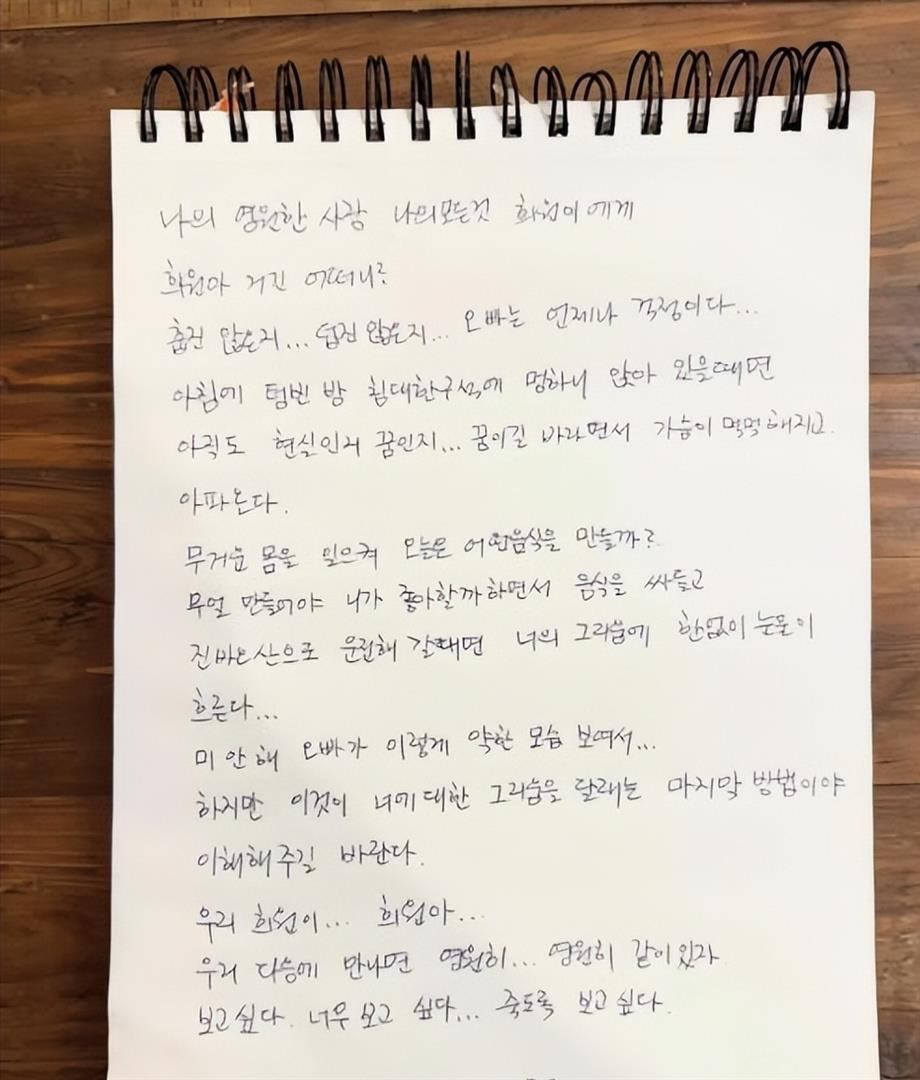 나의 영원한 사랑 나의모든것 희원이에게
희원아 거긴 어떠니?
춥진 않은지... 덥진않은지... 오빠는 언제나 걱정이다...
아침에 텅빈 방 침대한구석에 멍하니 앉아 있을때면
아직도 현실인지 꿈인지... 꿈이길 바라면서 가슴이 먹먹해지고
아파온다.
무거운 몸을 일으켜 오늘은 어떤음식을 만들까?
무얼 만들어야 니가 좋아할까하면서 음식을 싸들고
진바오산으로 운전해 갈때면 너의 그리움에 한없이 눈물이
흐른다...
미안해 오빠가 이렇게 약한 모습 보여서...
하지만 이것이 너에대한 그리움을 달래는 마지막 방법이야
이해해주길 바란다.
우리 희원이... 희원아...
우리 다음에 만나면 영원히... 영원히 같이있자
보고싶다. 너무 보고 싶다... 죽도록 보고싶다.